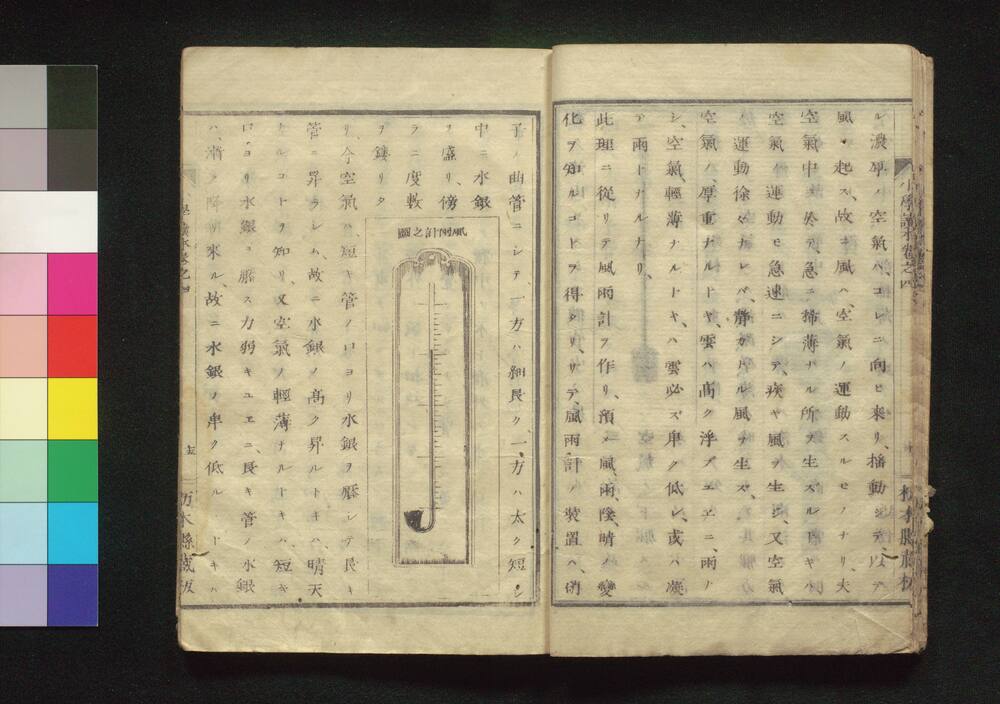 レ濃厚ノ空氣ハコレニ向ヒ來リ、播動シテ以テ
風ヲ起ス、故ニ風ハ、空氣ノ運動スルモノナリ、夫
空氣中ニ於テ、急ニ稀薄ナル所ヲ生ズルトキハ、
空氣ノ運動モ急速ニシテ、疾キ風ヲ生ジ、又空氣
ノ運動徐々ナレバ、靜カナル風ヲ生ズ、
空氣ノ厚重ナルトキ、雲ハ高ク浮ブユエニ、雨ナ
シ、空氣、輕薄ナルトキハ雲必ズ卑ク低レ、或ハ凝
テ雨トナルナリ、
此理ニ從リテ風雨計ヲ作リ、預メ風、雨、陰、晴ノ變
化ヲ知ルコトヲ得タリ、サテ、風雨計ノ裝置ハ、硝
小學讀本卷之四
栃木縣藏板
子ノ曲管ニシテ、一方ハ細長ク、一方ハ太ク短シ、
中ニ水銀
ヲ盛リ、傍
ラニ度數
ヲ鏤リタ
風雨計之圖
リ、今空氣ハ、短キ管ノ口ヨリ水銀ヲ壓シテ長キ
管ニ昇ラシム、故ニ水銀ノ高ク昇ルトキハ、晴天
トナルコトヲ知リ、又空氣ノ輕薄ナルトキハ、短キ
口ヨリ水銀ヲ壓ス力弱キユエニ、長キ管ノ水銀
ハ、漸ク降リ來ル、故ニ水銀ノ卑ク低ルトキハ
學讀本卷之四
十五
栃木縣藏板